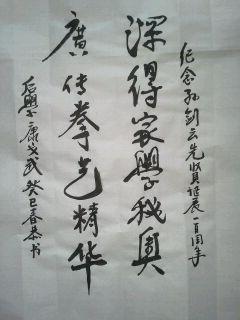 纪念孙剑云先贤诞辰一百周年
深得家學秘奥
廣传拳艺精华
后學康戈武癸巳春恭书